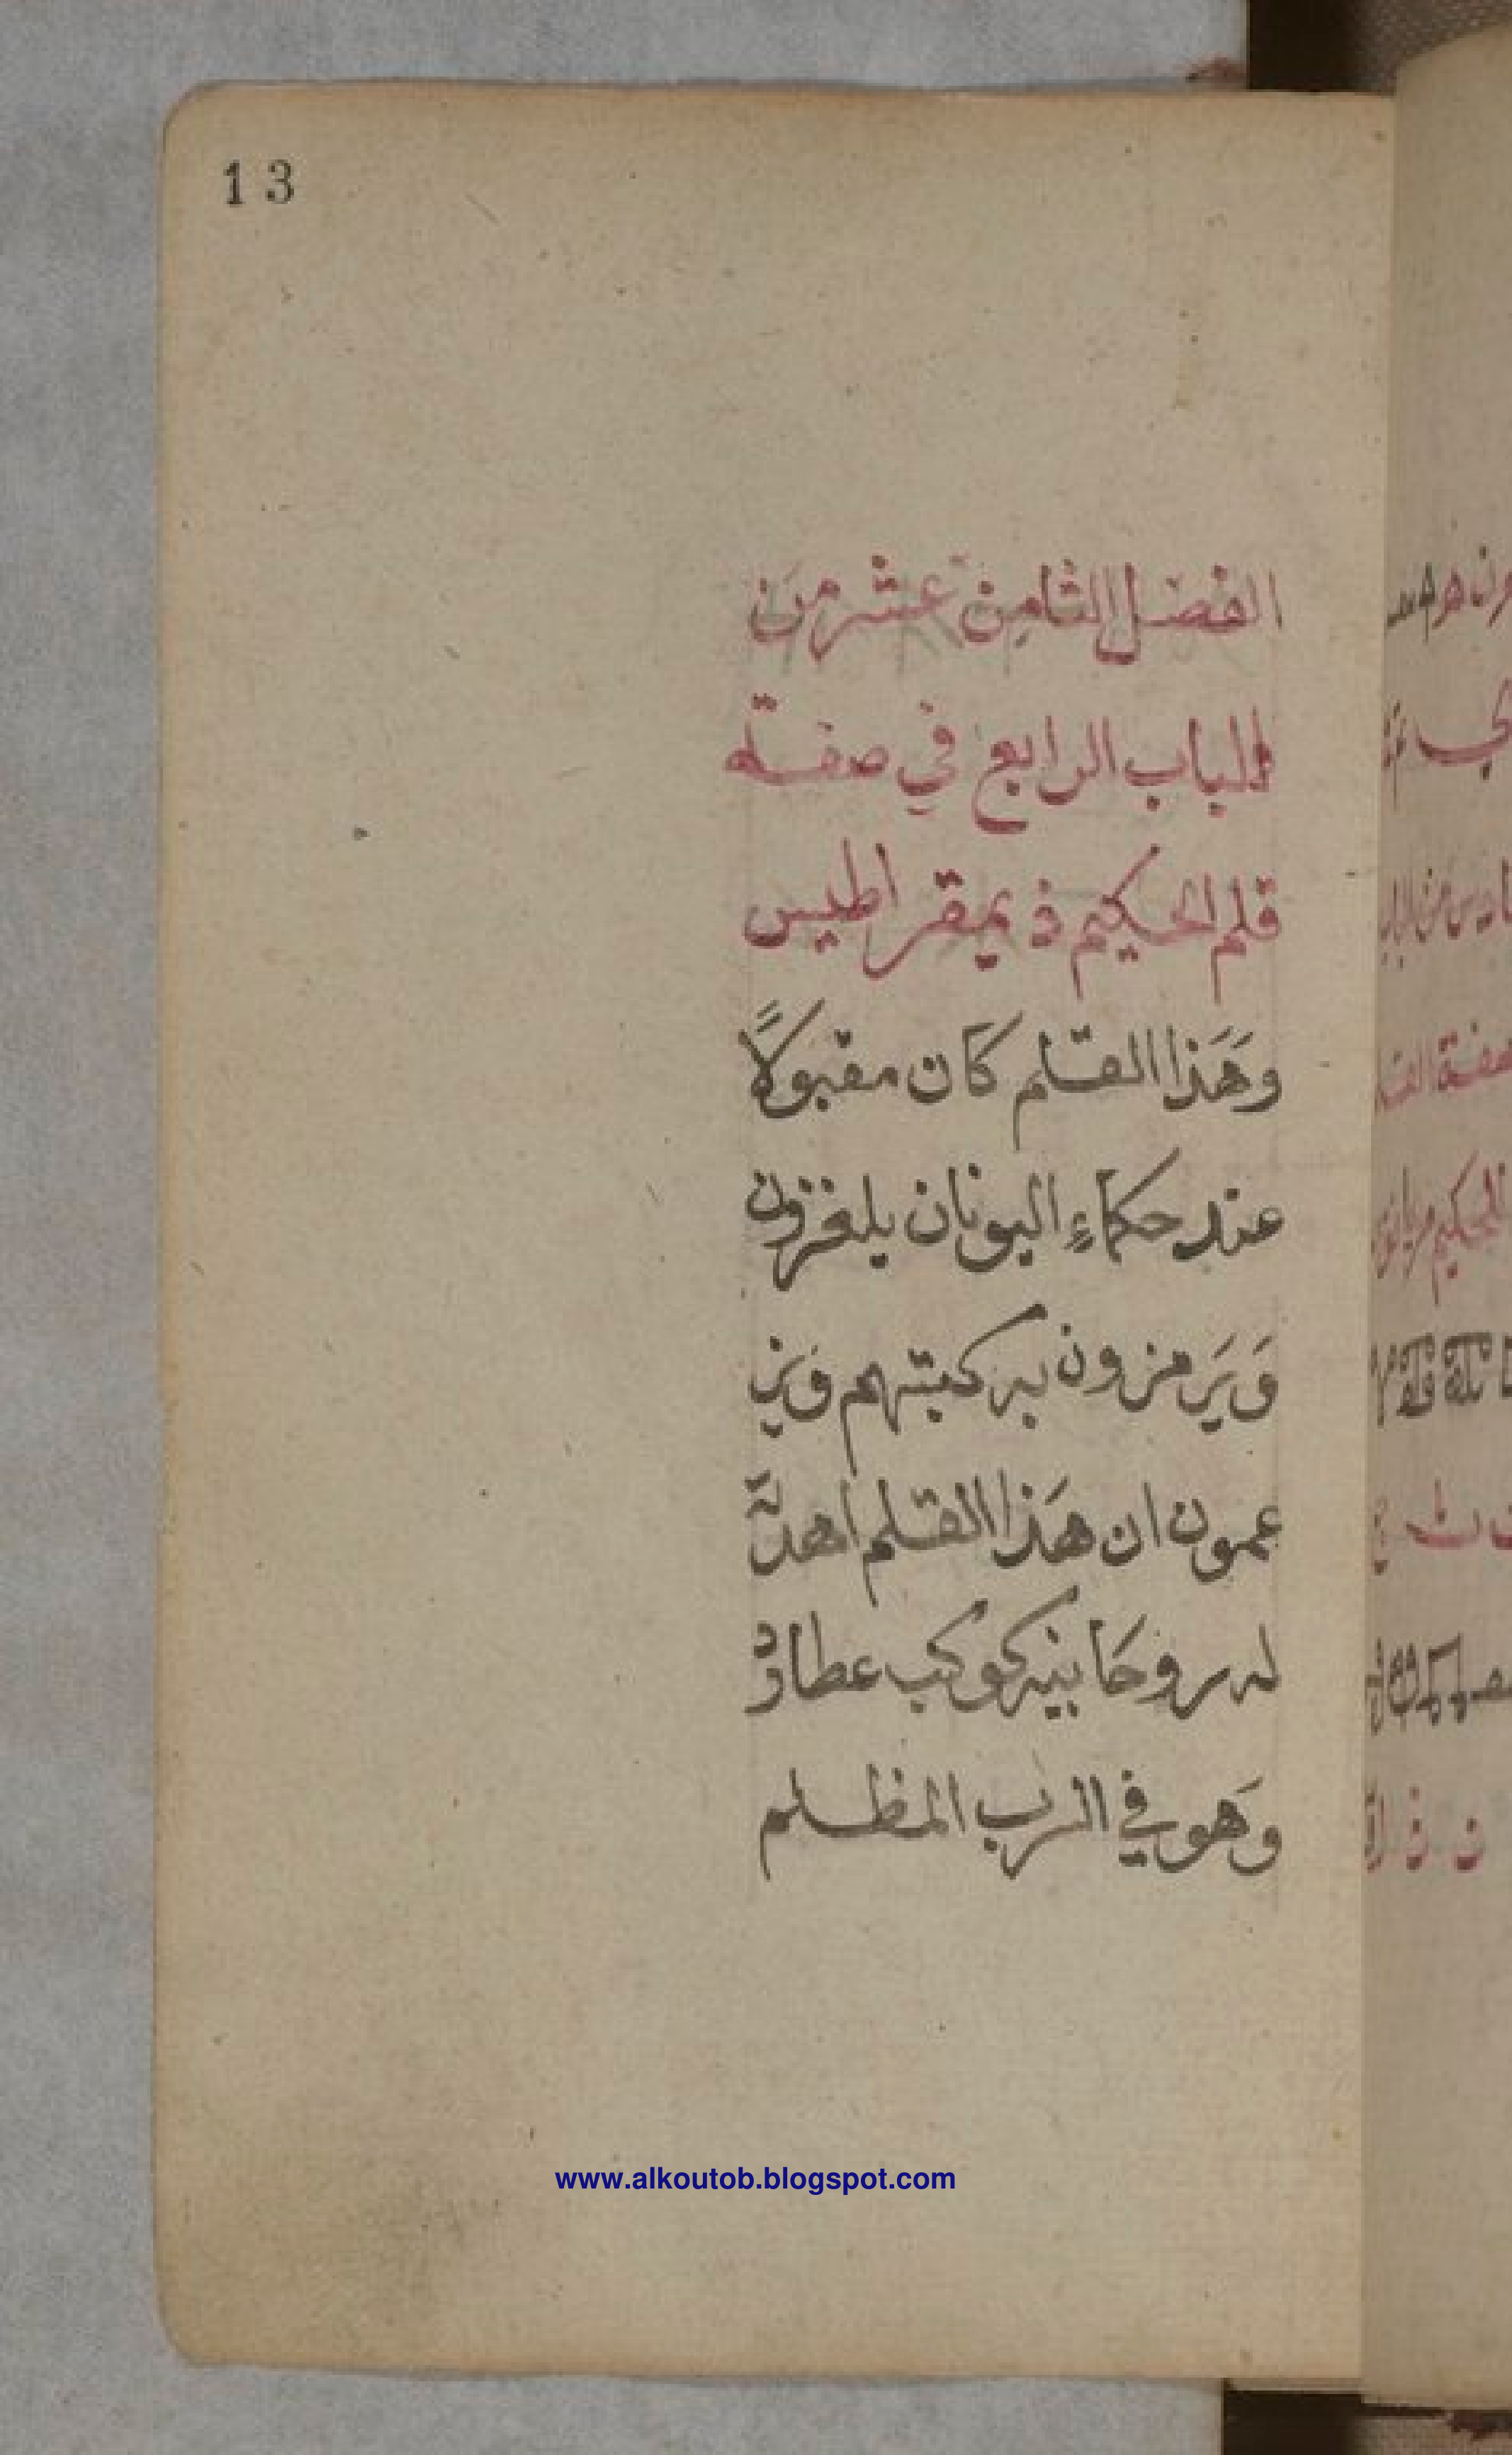 13
الفصل الثامن عشر من
الباب الرابع في صفة
قلم الحكيم ذيمقراطيس
وَهَذا القلم كَان مقبوَلاً
عند حكماءِ اليونان يلغزون
وَيَرمزون به كتبهم ويز
عمون ان هَذا القلم اهدته
له روحَانيه كوكب عطارد
وَهو في السرب المظلم
www.alkoutob.blogspot.com